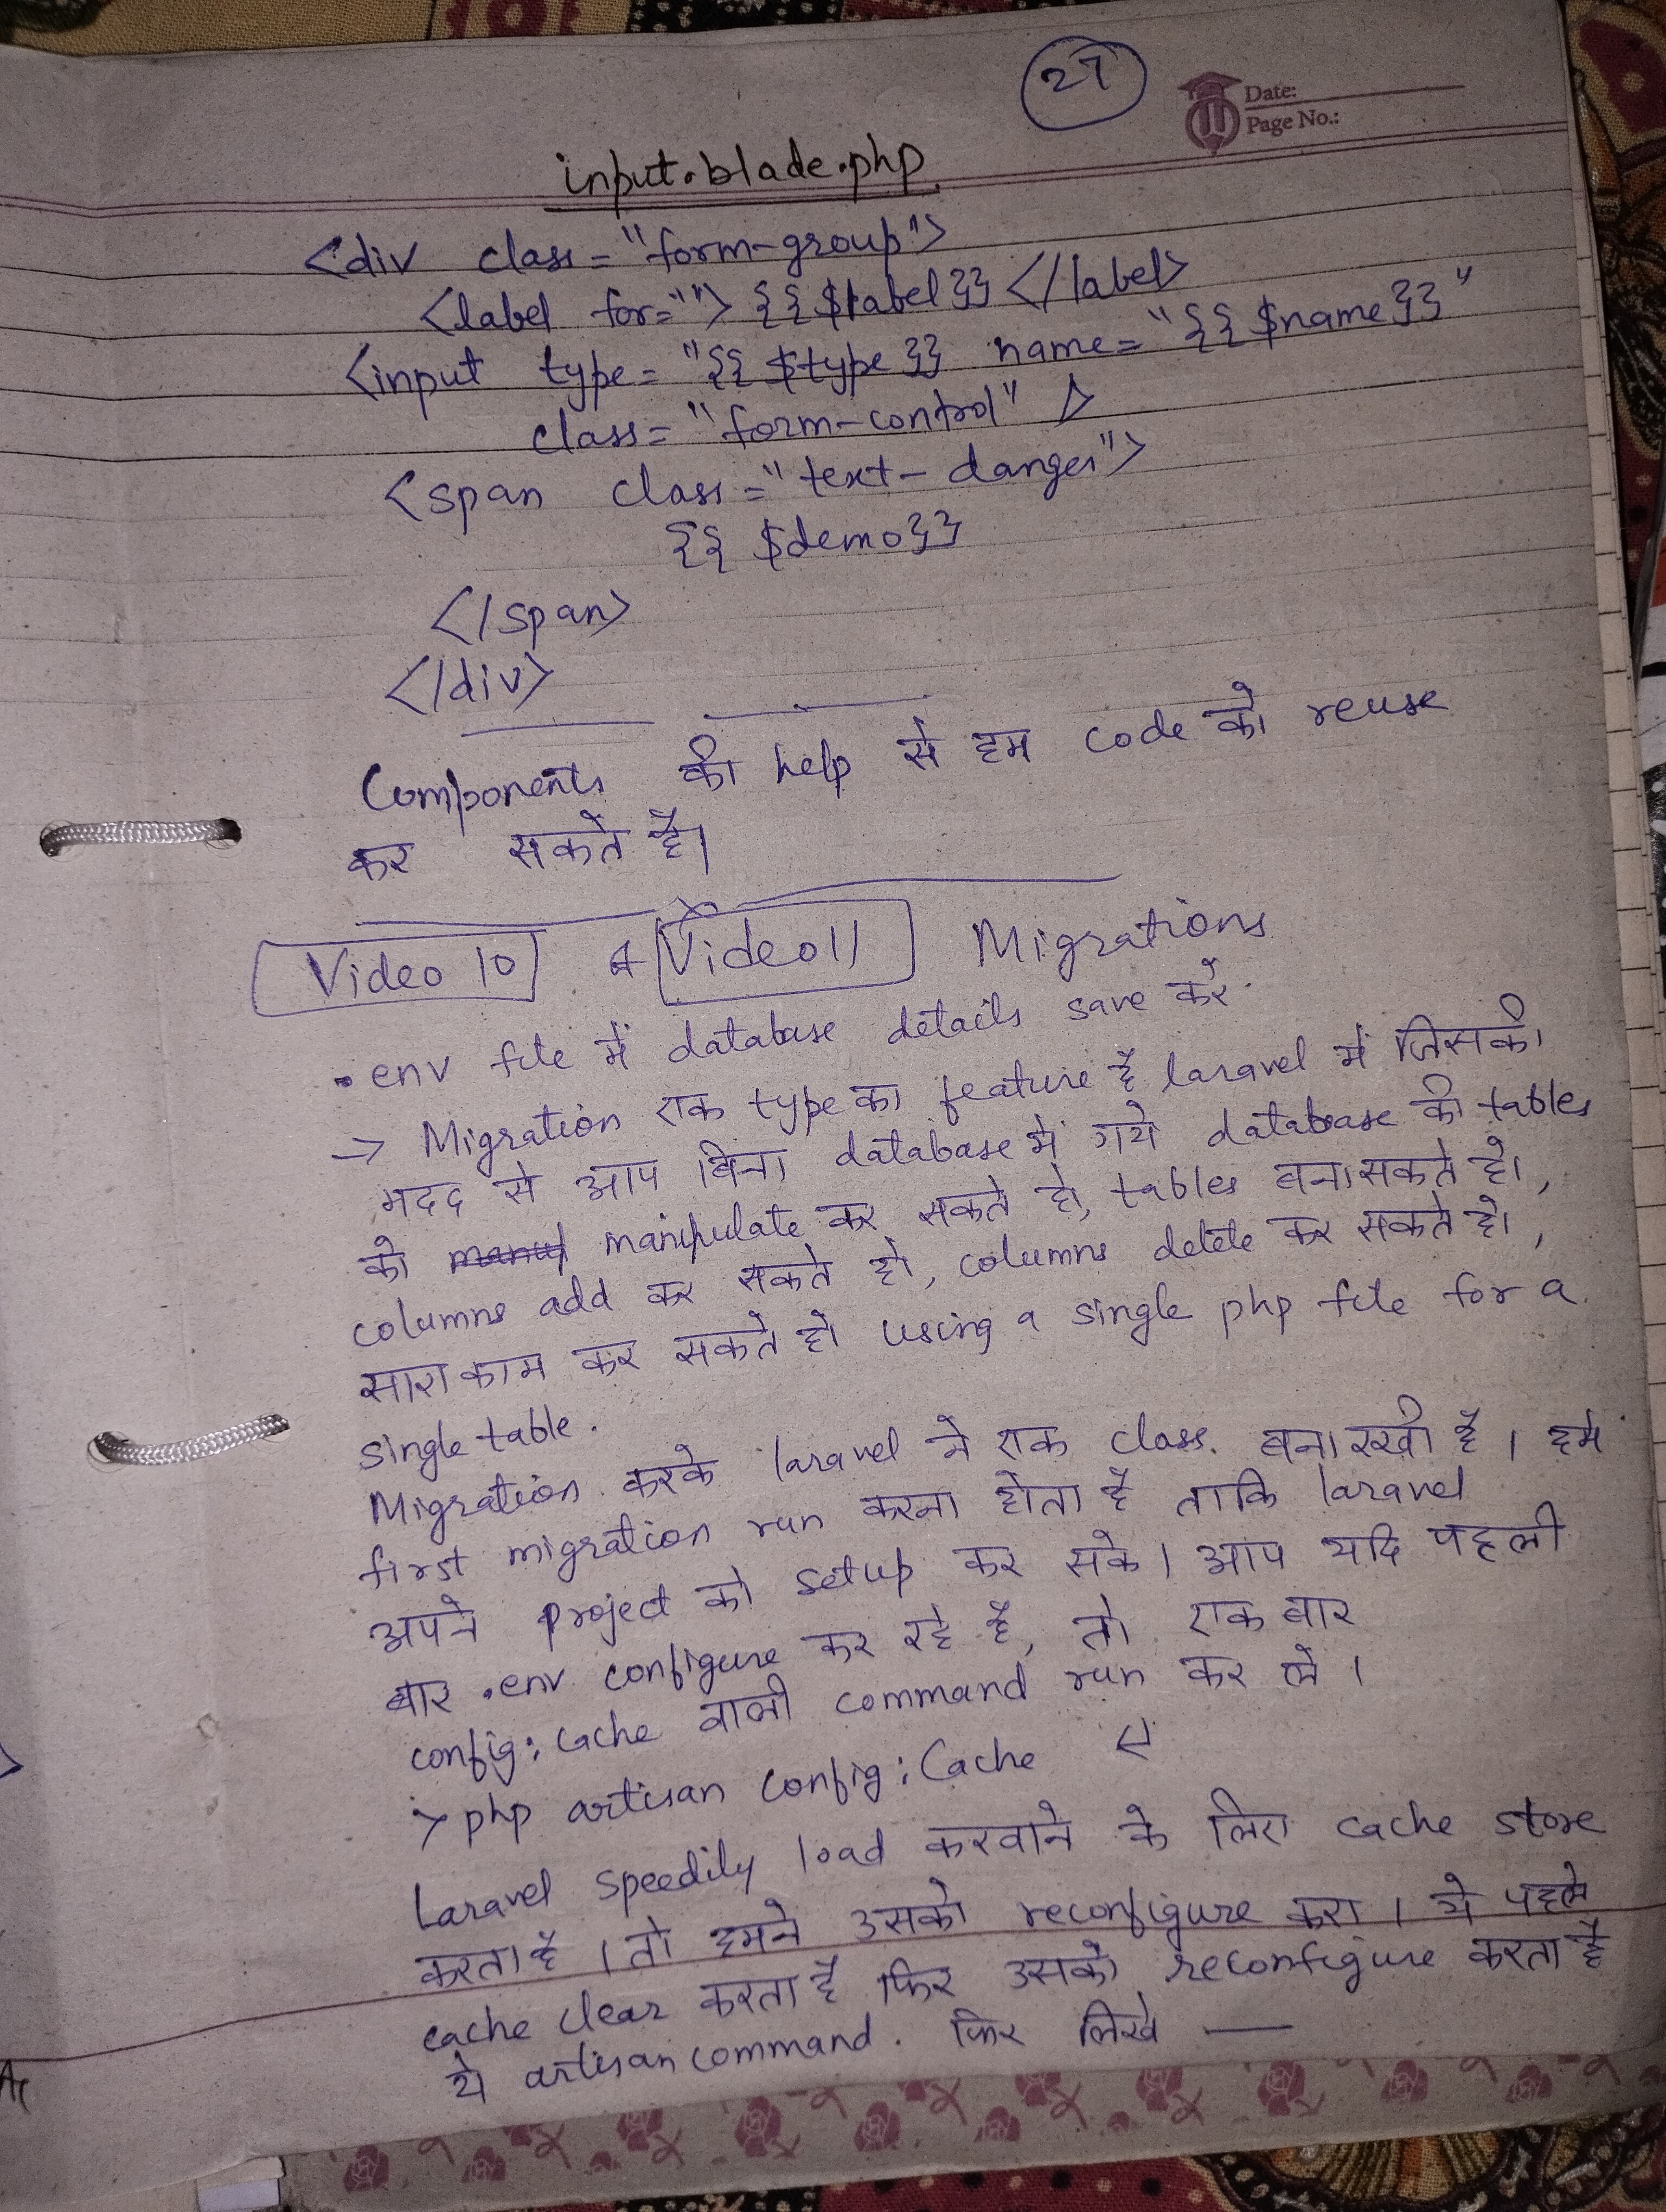 27
Date:
Page No.:
input.blade.php
<div class="form-group">
<label for=""> {{$label}} </label>
<input type="{{$type}} name="{{$name}}"
class="form-control" />
<span class="text-danger">
{{ $demo}}
</span>
</div>
Components की help से हम code को reuse
कर सकते है।
Video 10 & Video 11 Migrations
.env file में database details save करें.
→ Migration एक type का feature है laravel में जिसकी
मदद से आप बिना database में गये database की tables
को manipulate कर सकते हो, tables बना सकते हो,
columns add कर सकते हो, columns delete कर सकते हो,
सारा काम कर सकते हो using a single php file for a
single table.
Migration करके laravel ने एक class. बना रखी है। हमे
first migration run करना होता है ताकि laravel
अपने project को setup कर सके। आप यदि पहली
बार .env configure कर रहे है, तो एक बार
config:cache वाली command run कर ले।
> php artisan config:Cache ↵
Laravel speedily load करवाने के लिए cache store
करता है। तो हमने उसको reconfigure करा। ये पहले
cache clear करता है फिर उसको reconfigure करता है
ये artisan command. फिर लिखे —